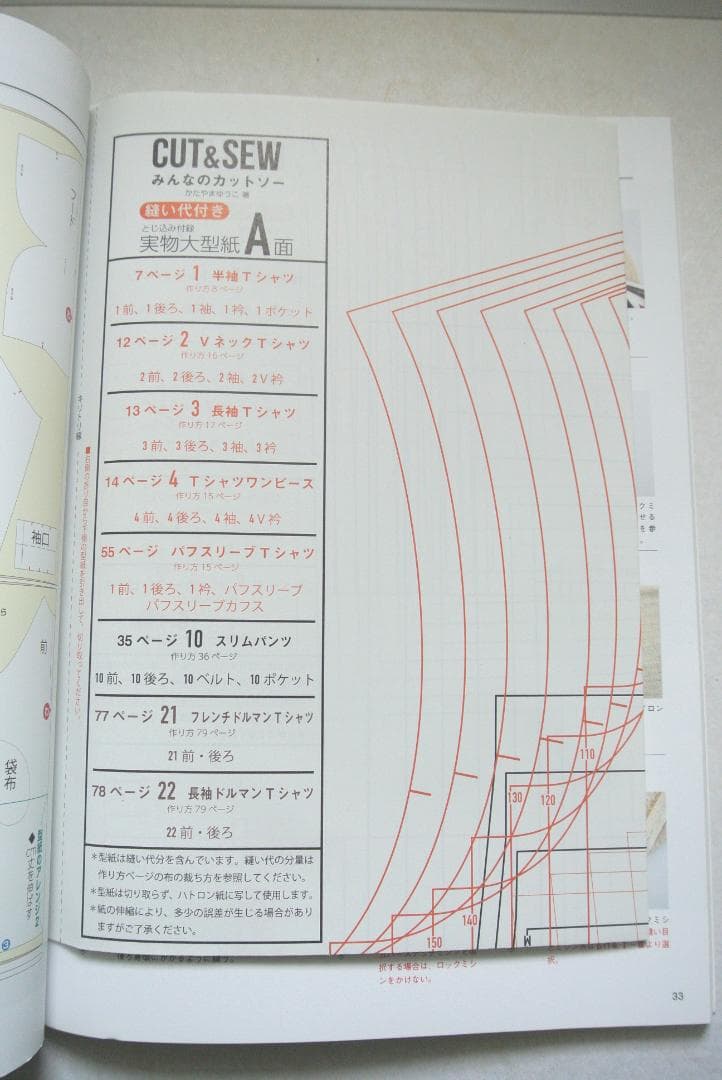 CUT&SEW
みんなのカットソー
かたやまゆうこ 著
縫い代付き
とじ込み付録
実物大型紙 A面
7ページ 1 半袖Tシャツ
作り方8ページ
1前、1後ろ、1袖、1衿、1ポケット
12ページ 2 VネックTシャツ
作り方16ページ
2前、2後ろ、2袖、2V衿
13ページ 3 長袖Tシャツ
作り方17ページ
3前、3後ろ、3袖、3衿
14ページ 4 Tシャツワンピース
作り方15ページ
4前、4後ろ、4袖、4V衿
55ページ パフスリーブTシャツ
作り方15ページ
1前、1後ろ、1衿、パフスリーブ
パフスリーブカフス
35ページ 10 スリムパンツ
作り方36ページ
10前、10後ろ、10ベルト、10ポケット
77ページ 21 フレンチドルマンTシャツ
作り方79ページ
21前・後ろ
78ページ 22 長袖ドルマンTシャツ
作り方79ページ
22前・後ろ
*型紙は縫い代分を含んでいます。縫い代の分量は
作り方ページの布の裁ち方を参照してください。
*型紙は切り取らず、ハトロン紙に写して使用します。
*紙の伸縮により、多少の誤差が生じる場合があり
ますがご了承ください。
キリトリ線
袖口
前
袋布
型紙のアレンジ2
◆cm丈を伸ばす
3
110
120
130
140
150
W
択する場合は、ロックミシ
ンをかけない。
択。
33